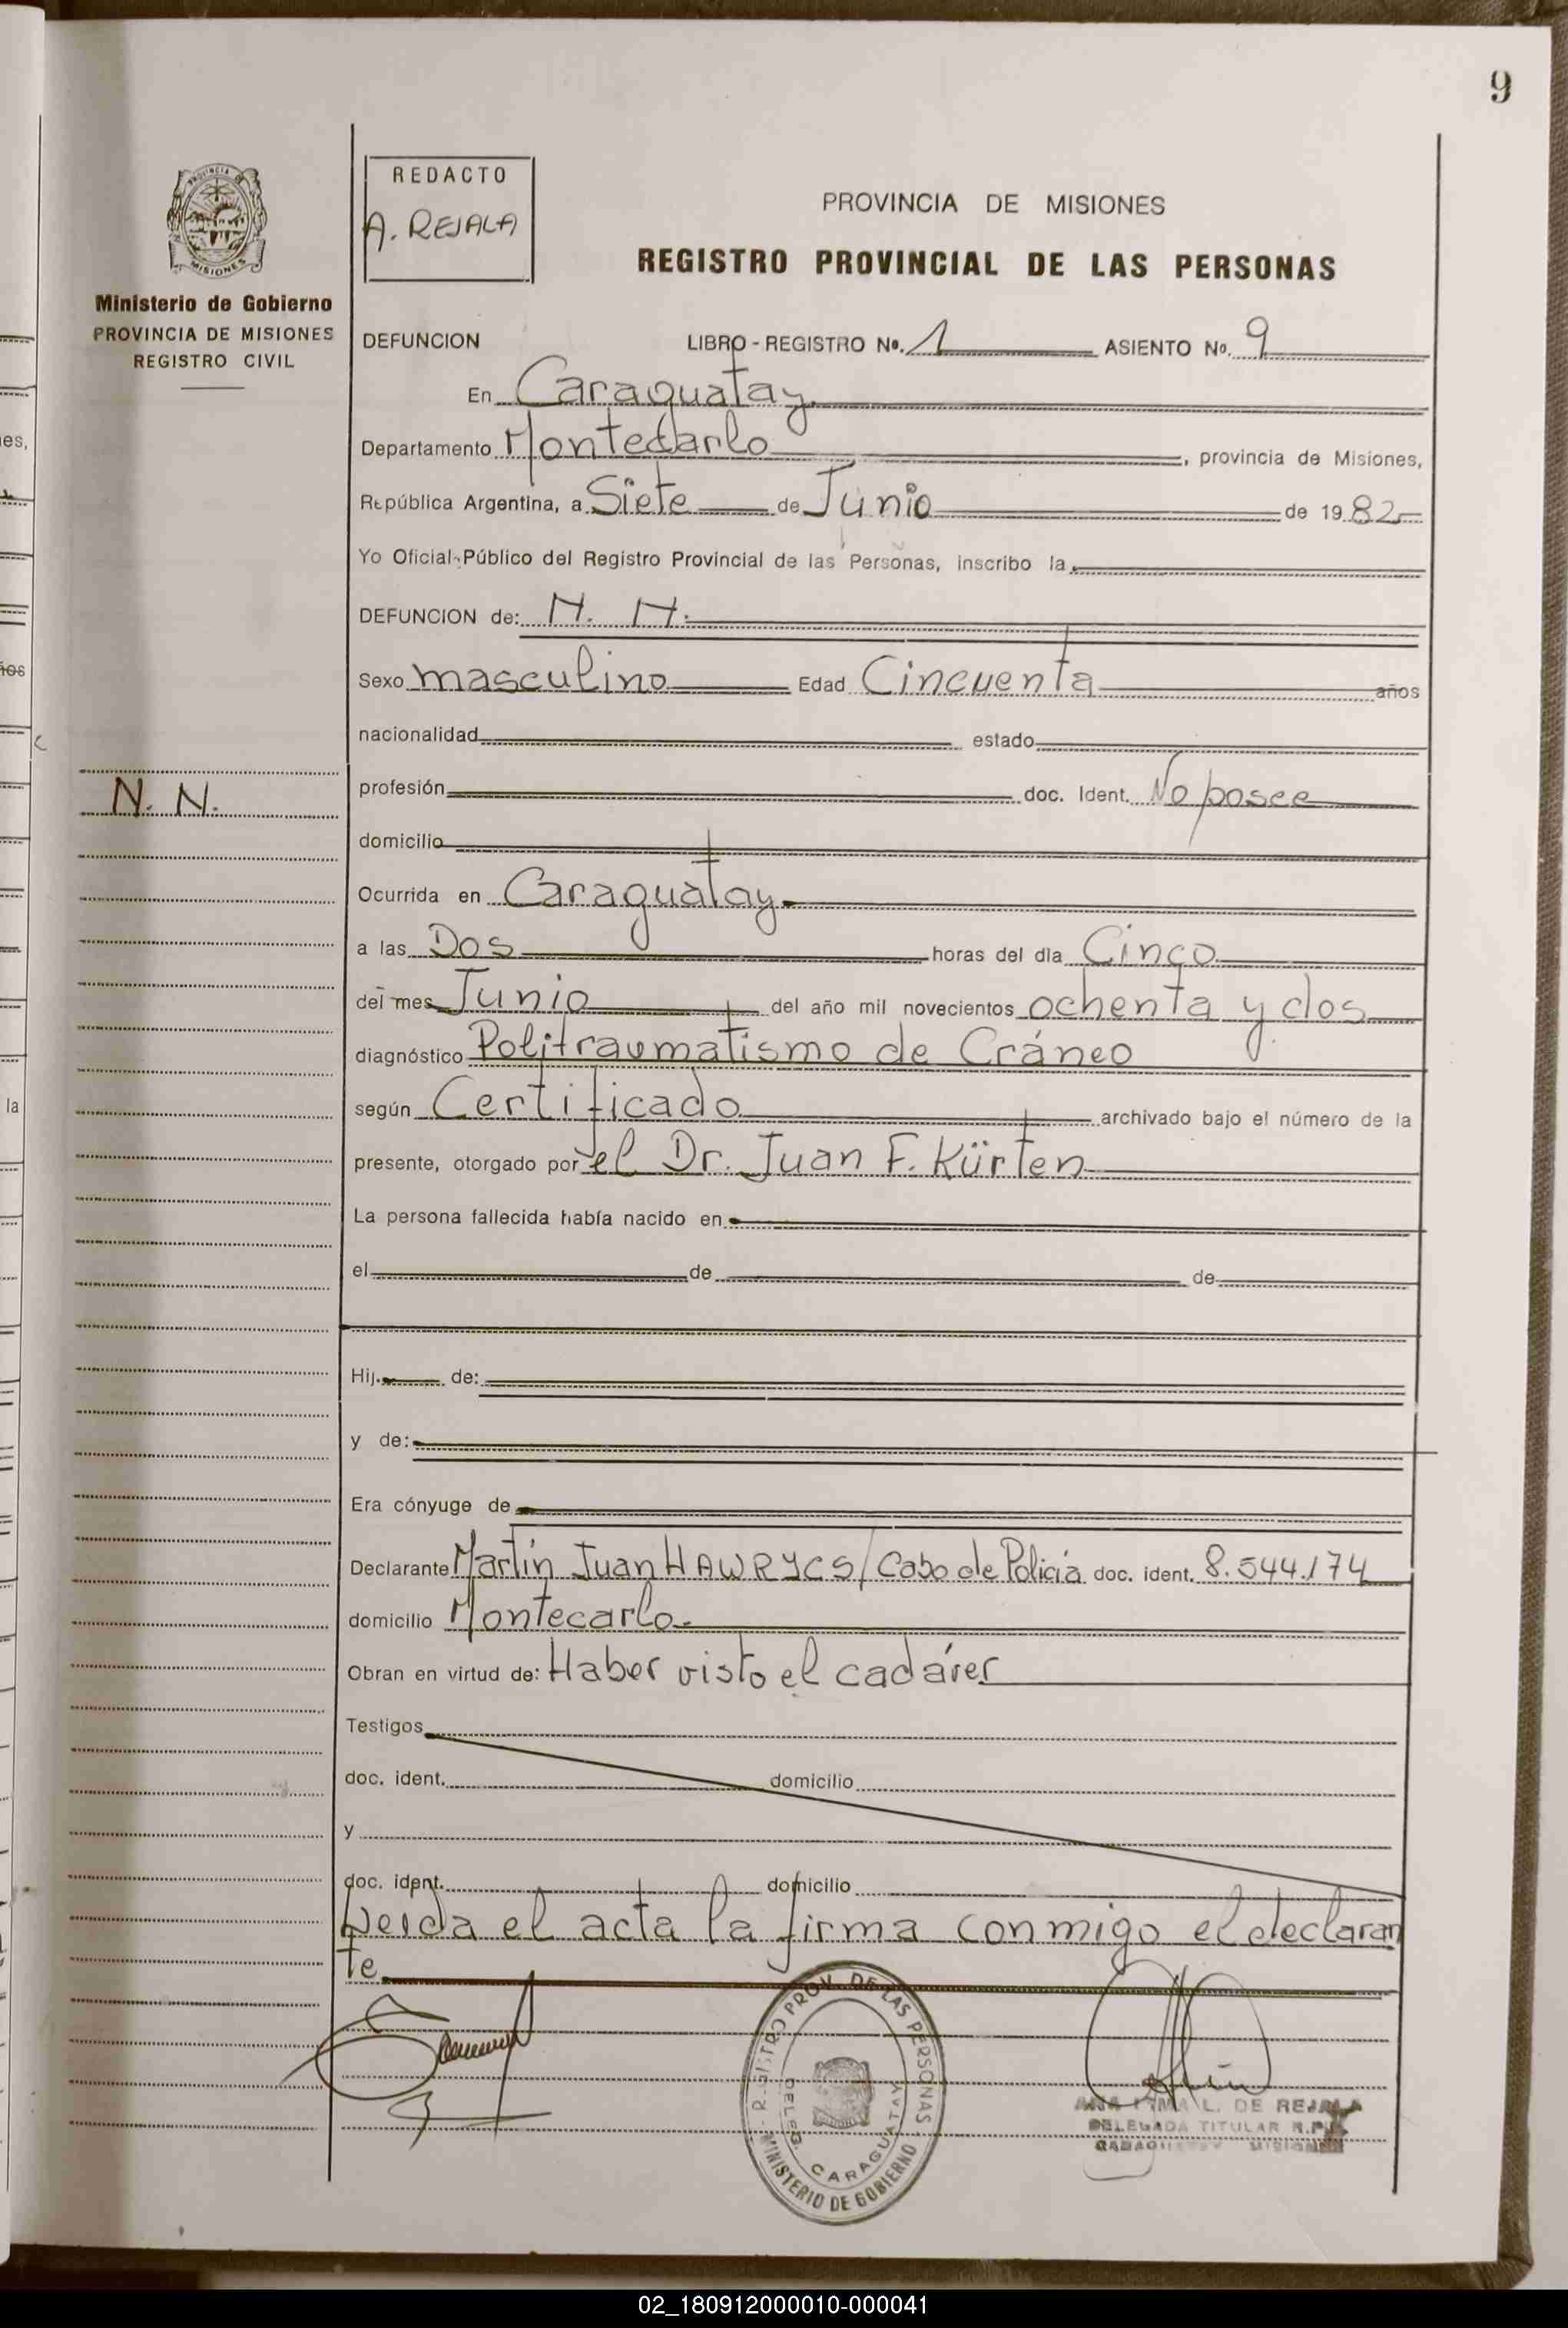 9
PROVINCIA DE
MISIONES
Ministerio de Gobierno
PROVINCIA DE MISIONES
REGISTRO CIVIL
N. N.
REDACTO
A. REJALA
PROVINCIA DE MISIONES
REGISTRO PROVINCIAL DE LAS PERSONAS
DEFUNCION LIBRO - REGISTRO Nº. 1 ASIENTO Nº. 9
En Caraguatay
Departamento Montecarlo, provincia de Misiones,
República Argentina, a Siete de Junio de 1982
Yo Oficial Público del Registro Provincial de las Personas, inscribo la
DEFUNCION de: N. N.
Sexo masculino Edad Cincuenta años
nacionalidad estado
profesión doc. Ident. No posee
domicilio
Ocurrida en Caraguatay
a las Dos horas del día Cinco
del mes Junio del año mil novecientos ochenta y dos
diagnóstico Politraumatismo de Cráneo
según Certificado archivado bajo el número de la
presente, otorgado por el Dr. Juan F. Kürten
La persona fallecida había nacido en
el de de
Hij. de:
y de:
Era cónyuge de
Declarante Martín Juan HAWRYCS/Cabo de Policía doc. ident. 8.544.174
domicilio Montecarlo.
Obran en virtud de: Haber visto el cadáver
Testigos
doc. ident. domicilio
y
doc. ident. domicilio
Leida el acta la firma conmigo el declaran
te
REGISTRO PROV. DE LAS PERSONAS
MINISTERIO DE GOBIERNO
DELEG. CARAGUATAY
ANA IRMA L. DE REJALA
DELEGADA TITULAR R.P.P.
CARAGUATAY MISIONES
02_180912000010-000041